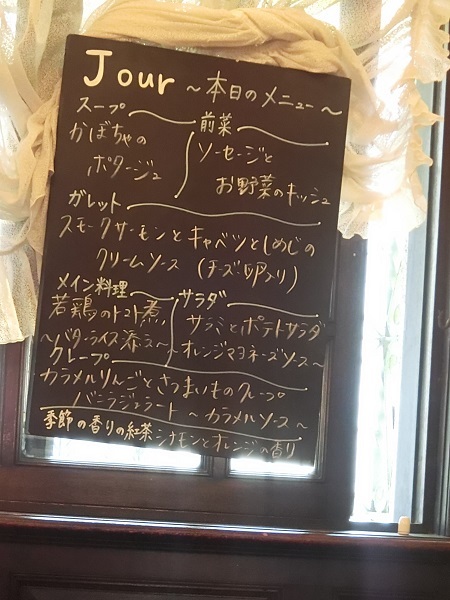 Jour ～本日のメニュー～
スープ
かぼちゃの
ポタージュ
前菜
ソーセージと
お野菜のキッシュ
ガレット
スモークサーモンとキャベツとしめじの
クリームソース (チーズ卵入り)
メイン料理
若鶏のトマト煮
～バターライス添え～
サラダ
サラミとポテトサラダ
～オレンジマヨネーズソース～
クレープ
カラメルりんごとさつまいものクレープ
バニラジェラート ～カラメルソース～
季節の香りの紅茶 シナモンとオレンジの香り